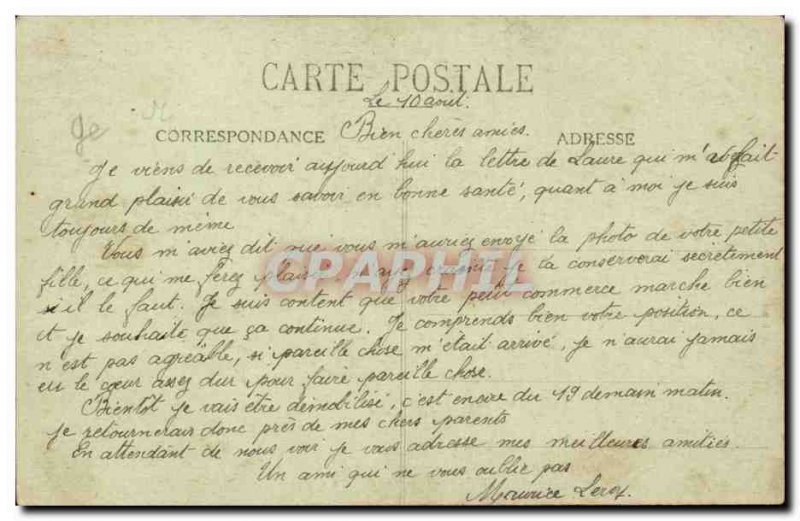 CARTE POSTALE
Le 10 aout.
CORRESPONDANCE Bien chères amies. ADRESSE
Je viens de recevoir aujourd hui la lettre de Laure qui m'a fait
grand plaisir de vous savoir en bonne santé, quant à moi je suis
toujours de même
Vous m'aviez dit que vous m'auriez envoyé la photo de votre petite
fille, ce qui me ferez plaisir n'ayez crainte je la conserverai secrètement
s'il le faut. Je suis content que votre petit commerce marche bien
et je souhaite que ça continue. Je comprends bien votre position, ce
n'est pas agréable, si pareille chose m'était arrivé, je n'aurai jamais
eu le cœur assez dur pour faire pareille chose.
Bientot je vais être démobilisé, c'est encore du 19 demain matin.
Je retournerais donc près de mes chers parents
En attendant de nous voir je vous adresse mes meilleures amitiés.
Un ami qui ne vous oublie pas
Maurice Leroy.
CPAPHIL